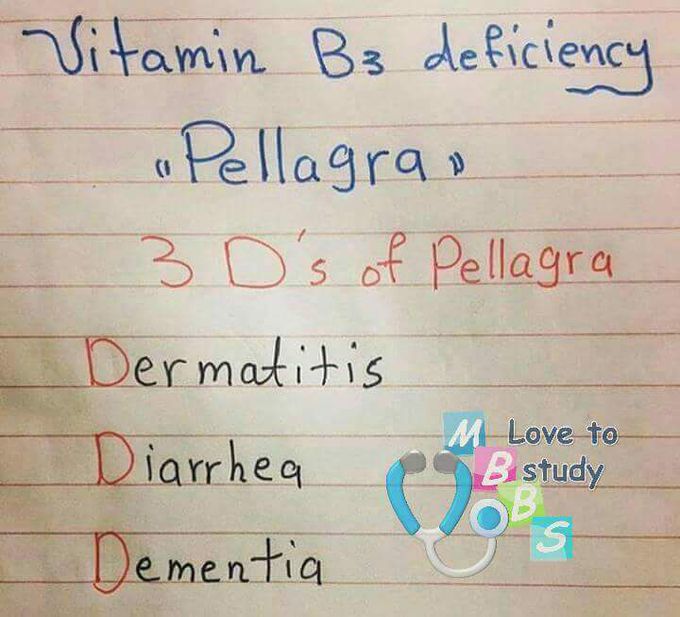 Vitamin B3 deficiency
"Pellagra"
3 D's of Pellagra
Dermatitis
Diarrhea
Dementia
Love to
study
MBBS